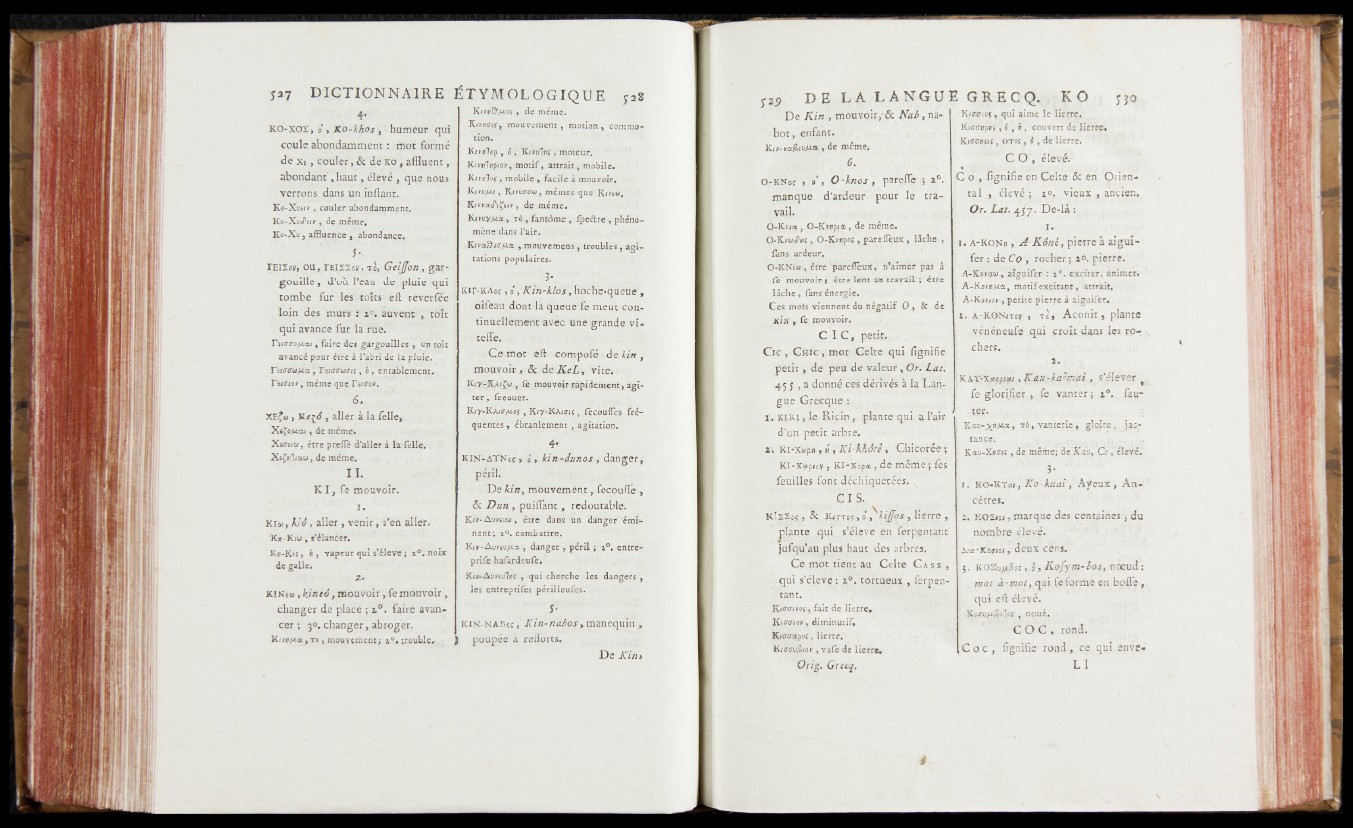 527 DICTIONNAIRE ÉTYMOLOGIQUE 528
4.
KO-ΧΟΣ, ὁ, Ko-khos, humeur qui
coule abondamment : mot formé
de Χε, couler, & de κο, affluent,
abondant, haut, élevé, que nous
verrons dans un instant.
Κο-Χυειν, couler abondamment.
Κο-Χυδειν, de même.
Κο-Χυ, affluence, abondance.
5.
ΓΕΙΣον, ou, ΓΕΙΣΣον, τὸ, Geisson, gar-
gouille, d'où l'eau de pluie qui
tombe sur les toîts est reversée
loin des murs : 2°. auvent, toît
qui avance sur la rue.
Γεισσομαι, faire des gargouilles, un toît
avancé pour être à l'abri de la pluie.
Γεισσωμα, Γεισσωσις, ἡ, entablement.
Γεισιον, même que Γεισον.
6.
ΧΕζω, Kezó, aller à la selle,
Χεζομαι, de même.
Χεσειω, être pressé d'aller à la selle.
Χεζητιαω, de même.
II.
KI, se mouvoir.
1.
Κιω, kiô, aller, venir, s'en aller.
Κη-Κιω, s'élancer.
Κη-Κις, ἡ, vapeur qui s'éleve; 2°. noix
de galle.
2.
ΚΙΝεω, kineô, mouvoir, se mouvoir,
changer de place; 2°. faire avan-
cer; 3°. changer, abroger.
Κινημα, το, mouvement; 2°. trouble.
Κινηθμος, de même.
Κινησις, mouvement, motion, commo-
tion.
Κινητηρ, ὁ, Κινητης, moteur.
Κινητηριον, motif, attrait, mobile.
Κινητος, mobile, facile à mouvoir.
Κινυμι, Κινυσσω, mêmes que Κινεω.
Κινναδιζειν, de même.
Κινυγμα, τὸ, fantôme, spectre, phéno-
mène dans l'air.
Κιναθισμα, mouvemens, troubles, agi-
tations populaires.
3.
ΚΙΓ-ΚΛος, ὁ, Kin-klos, hoche-queue,
oiseau dont la queue se meut con-
tinuellement avec une grande vi-
tesse.
Ce mot est composé de kin,
mouvoir, & de KeL, vîte.
Κιγ-Κλιζω, se mouvoir rapidement, agi-
ter, secouer.
Κιγ-Κλισμος, Κιγ-Κλισις, secousses fré-
quentes, ébranlement, agitation.
4.
ΚΙΝ-ΔΥΝος, ὁ, kin-dunos, danger,
péril.
De kin, mouvement, secousse,
& Dun, puissant, redoutable.
Κιν-Δυνευω, être dans un danger émi-
nent; 2°. combattre.
Κιν-Δυνευμα, danger, péril; 2°. entre-
prise hasardeuse.
Κιν-Δυνευτης, qui cherche les dangers,
les entreprises périlleuses.
5.
ΚΙΝ-ΝΑΒος, Kin-nabos, manequin,
poupée à ressorts.
De Kin,
529 DE LA LANGUE GRECQ. KO 530
De Kin, mouvoir, & Nab, na-
bot, enfant.
Κιν-ναβευμα, de même.
6.
Ο-ΚΝος, ὁ, O-knos, paresse; 2°.
manque d'ardeur pour le tra-
vail.
Ο-Κνια, Ο-Κνηρια, de même.
Ο-Κνωδης, Ο-Κνηρος, paresseux, lâche,
sans ardeur.
Ο-ΚΝεω, être paresseux, n'aimer pas à
se mouvoir; être lent au travail; être
lâche, sans énergie.
Ces mots viennent du négatif O, & de
KIN, se mouvoir.
CIC, petit.
Cic, Chic, mot Celte qui signifie
petit, de peu de valeur, Or. Lat.
455, a donné ces dérivés à la Lan-
gue Grecque :
1. ΚΙΚΙ, le Ricin, plante qui a l'air
d'un petit arbre.
2. ΚΙ-Χωρη, ἡ, Ki-khôré, Chicorée;
ΚΙ-Χωριον, ΚΙ-Χορα, de même; ses
feuilles sont déchiquetées.
CIS.
ΚΙΣΣος, & Κιττος, ὁ, kissos, lierre,
plante qui s'éleve en serpentant
jusqu'au plus haut des arbres.
Ce mot tient au Celte Cass,
qui s'éleve : 2°. tortueux, serpen-
tant.
Κισσινος, fait de lierre.
Κισσιον, diminutif.
Κισσαρος, lierre.
Κισσυβιον, vase de lierre.
Orig. Grecq.
Κισσευς, qui aime le lierre.
Κισσηρης, ὁ, ἡ, couvert de lierre.
Κισσηεις, εντος, ὁ, de lierre.
CO, élevé.
Co, signifie en Celte & en Orien-
tal, élevé; 2°. vieux, ancien.
Or. Lat. 457. De-là :
1.
1. Α-ΚΟΝη, A-Kóné, pierre à aigui-
ser : de Co, rocher; 2°. pierre.
Α-Κοναω, aiguiser : 2°. exciter, animer.
Α-Κονημα, motif excitant, attrait.
Α-Κονιον, petite pierre à aiguiser.
2. Α-ΚΟΝιτον, τὸ, Aconit, plante
vénéneuse qui croît dans les ro-
chers.
2.
ΚΑΥ-Χαομαι, Kau-kaomai, s'élever,
se glorifier, se vanter; 2°. sau-
ter.
Καυ-χημα, τὸ, vanterie, gloire, jac-
tance.
Καυ-Χησις, de même; de Καυ, Co, élevé.
3.
1. ΚΟ-ΚΥαι, Ko-kuai, Ayeux, An-
cêtres.
2. ΚΟΣιοι, marque des centaines, du
nombre élevé.
Δια-Κοσιοι, deux cens.
3. ΚΟΣυμβος, ὁ, Kosym-bos, nœud :
mot à-mot, qui se forme en bosse,
qui est élevé.
Κοσυμβωτος, noué.
COC, rond.
Coc, signifie rond, ce qui enve-
L l